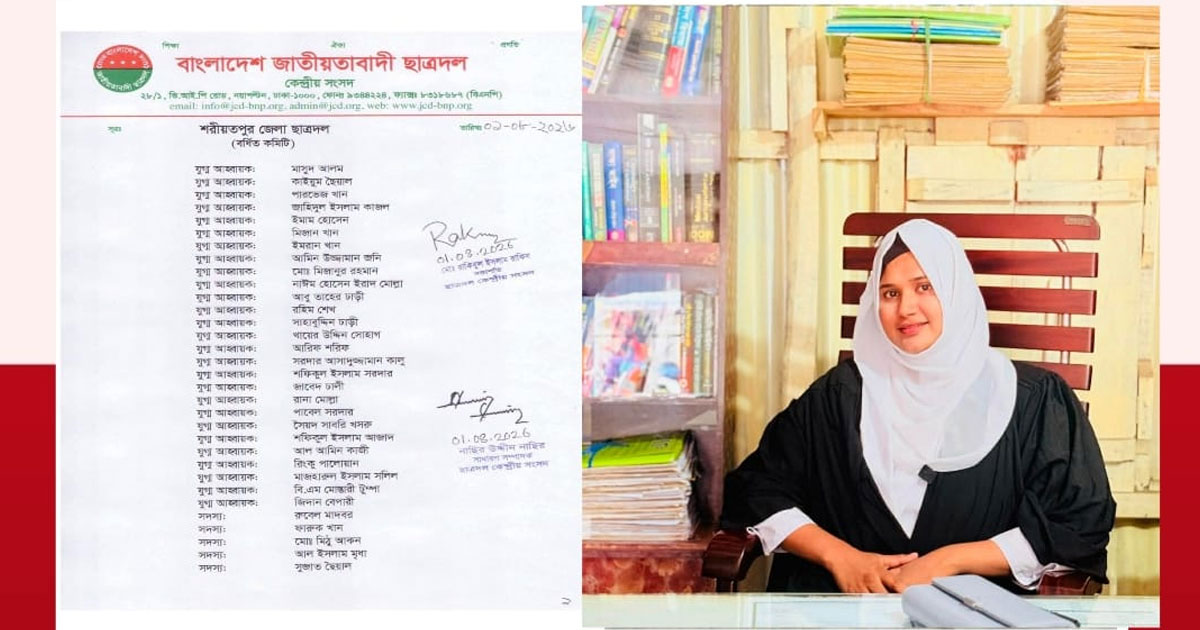 শিক্ষা ঐক্য প্রগতি
বাংলাদেশ জাতীয়তাবাদী ছাত্রদল
কেন্দ্রীয় সংসদ
২৮/১, ভি.আই.পি রোড, নয়াপল্টন, ঢাকা-১০০০, ফোনঃ ৯৩৪৪২২৪, ফ্যাক্সঃ ৮৩১৮৬৮৭ (বিএনপি)
email: info@jcd-bnp.org, admin@jcd.org, web: www.jcd-bnp.org
সূত্রঃ
তারিখঃ
শরীয়তপুর জেলা ছাত্রদল
(বর্ধিত কমিটি)
যুগ্ম আহ্বায়ক: মাসুদ আলম
যুগ্ম আহ্বায়ক: কাইয়ুম ছৈয়াল
যুগ্ম আহ্বায়ক: পারভেজ খান
যুগ্ম আহ্বায়ক: জাহিদুল ইসলাম কাজল
যুগ্ম আহ্বায়ক: ইমাম হোসেন
যুগ্ম আহ্বায়ক: মিজান খান
যুগ্ম আহ্বায়ক: ইমরান খান
যুগ্ম আহ্বায়ক: আমিন উজ্জামান জনি
যুগ্ম আহ্বায়ক: মোঃ মিজানুর রহমান
যুগ্ম আহ্বায়ক: নাঈম হোসেন ইরাদ মোল্লা
যুগ্ম আহ্বায়ক: আবু তাহের ঢাড়ী
যুগ্ম আহ্বায়ক: রহিম শেখ
যুগ্ম আহ্বায়ক: সাহাবুদ্দিন ঢাড়ী
যুগ্ম আহ্বায়ক: খায়ের উদ্দিন সোহাগ
যুগ্ম আহ্বায়ক: আরিফ শরিফ
যুগ্ম আহ্বায়ক: সরদার আসাদুজ্জামান কালু
যুগ্ম আহ্বায়ক: শফিকুল ইসলাম সরদার
যুগ্ম আহ্বায়ক: জাবেদ ঢালী
যুগ্ম আহ্বায়ক: রানা মোল্লা
যুগ্ম আহ্বায়ক: পাবেল সরদার
যুগ্ম আহ্বায়ক: সৈয়দ সাবরি খসরু
যুগ্ম আহ্বায়ক: শফিকুল ইসলাম আজাদ
যুগ্ম আহ্বায়ক: আল আমিন কাজী
যুগ্ম আহ্বায়ক: রিংকু পালোয়ান
যুগ্ম আহ্বায়ক: মাজহারুল ইসলাম সলিল
যুগ্ম আহ্বায়ক: বি.এম মোস্তারী টুম্পা
যুগ্ম আহ্বায়ক: জিদান বেপারী
সদস্য: রুবেল মাদবর
সদস্য: ফারুক খান
সদস্য: মোঃ মিঠু আকন
সদস্য: আল ইসলাম মৃধা
সদস্য: সুজাত ছৈয়াল
01.03.2026
মোঃ রাকিবুল ইসলাম রাকিব
সভাপতি
ছাত্রদল কেন্দ্রীয় সংসদ
01.03.2026
নাছির উদ্দীন নাছির
সাধারণ সম্পাদক
ছাত্রদল কেন্দ্রীয় সংসদ
২